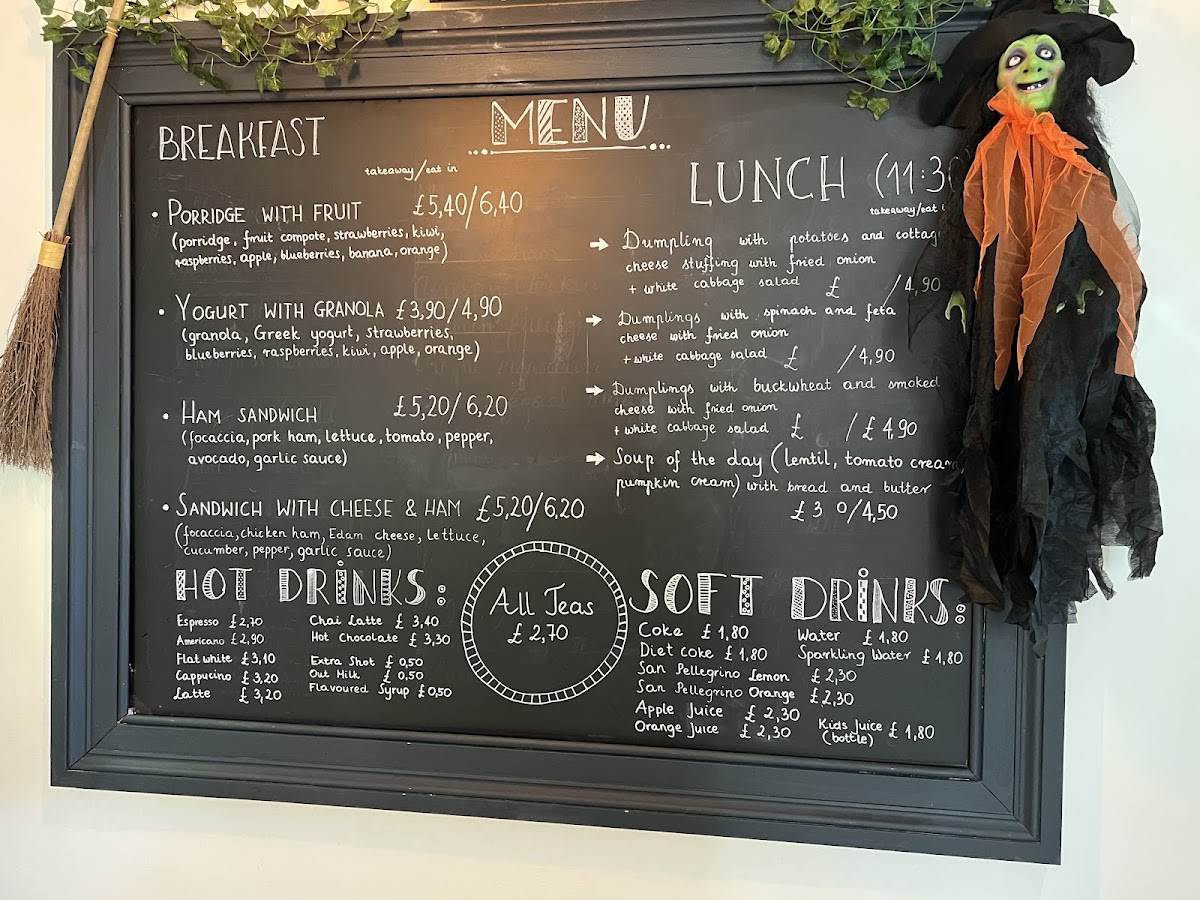 MENU
BREAKFAST
takeaway/eat in
• PORRIDGE WITH FRUIT £5,40/6,40
(porridge, fruit compote, strawberries, kiwi,
raspberries, apple, blueberries, banana, orange)
• YOGURT WITH GRANOLA £3,90/4,90
(granola, Greek yogurt, strawberries,
blueberries, raspberries, kiwi, apple, orange)
• HAM SANDWICH £5,20/6,20
(focaccia, pork ham, lettuce, tomato, pepper,
avocado, garlic sauce)
• SANDWICH WITH CHEESE & HAM £5,20/6,20
(focaccia, chicken ham, Edam cheese, lettuce,
cucumber, pepper, garlic sauce)
LUNCH (11:3
takeaway/eat
➡ Dumpling with potatoes and cottag
cheese stuffing with fried onion
+ white cabbage salad £ /4,90
➡ Dumplings with spinach and feta
cheese with fried onion
+ white cabbage salad £ /4,90
➡ Dumplings with buckwheat and smoked
cheese with fried onion
+ white cabbage salad £ /£4,90
➡ Soup of the day (lentil, tomato cream
pumpkin cream) with bread and butter
£3 0/4,50
HOT DRINKS:
Espresso £2,70
Americano £2,90
Flat white £3,10
Cappucino £3,20
Latte £3,20
Chai Latte £3,40
Hot Chocolate £3,30
Extra Shot £0,50
Out Milk £0,50
Flavoured Syrup £0,50
All Teas
£2,70
SOFT DRINKS:
Coke £1,80
Diet coke £1,80
San Pellegrino Lemon £2,30
San Pellegrino Orange £2,30
Apple Juice £2,30
Orange Juice £2,30
Water £1,80
Sparkling Water £1,80
Kids Juice £1,80
(bottle)